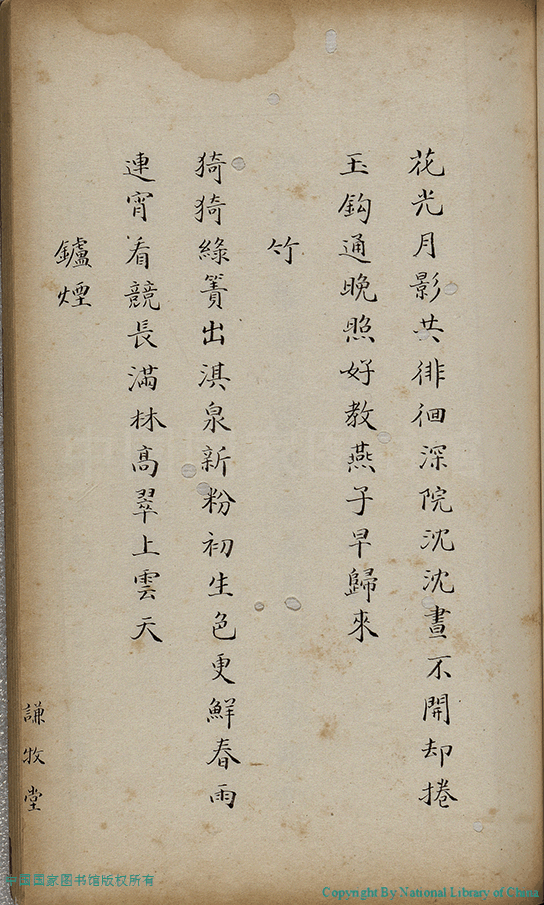 花光月影共徘徊深院沈沈晝不開却捲
玉鈎通晚照好教燕子早歸來
竹
猗猗綠簀出淇泉新粉初生色更鮮春雨
連宵看競長滿林高翠上雲天
鑪煙
謙牧堂
中国国家图书馆版权所有
Copyright By National Library of China